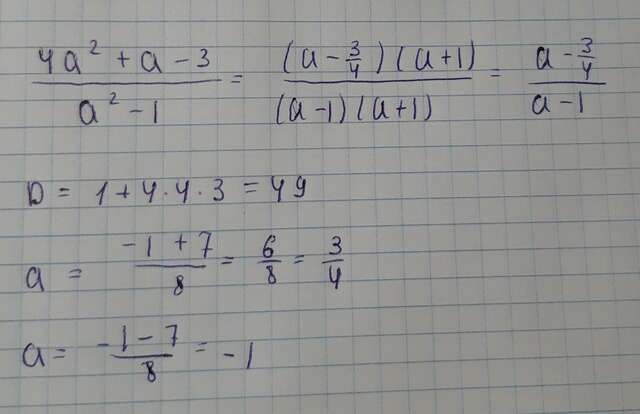 (4a² + a - 3)/(a² - 1) = ((a - 3/4)(a + 1))/((a - 1)(a + 1)) = (a - 3/4)/(a - 1)
D = 1 + 4 · 4 · 3 = 49
a = (-1 + 7)/8 = 6/8 = 3/4
a = (-1 - 7)/8 = -1